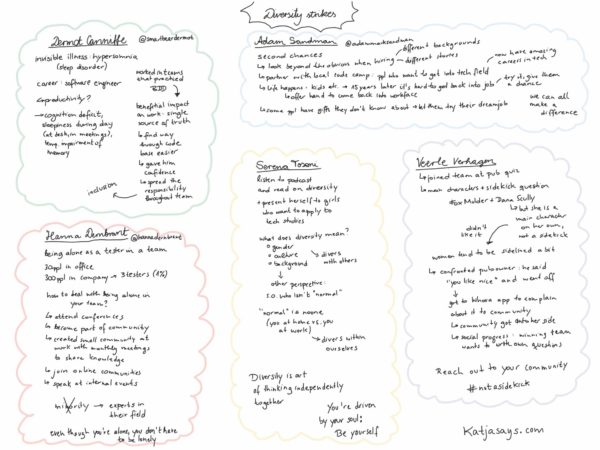 Diversity strikes
Dermot Canniffe @smartbeardermot
invisible illness hypersomnia
(sleep disorder)
career: software engineer
↳ productivity?
→ cognition deficit,
sleepiness during day
(at desk, in meetings),
temp. impairment of
memory
worked in teams
that practiced
BDD
↓
beneficial impact
on work: single
source of truth
↳ find way
through code
base easier
↳ gave him
confidence
↳ spread the
responsibility
throughout team
inclusion
Adam Sandman @adammarksandman
second chances
↳ look beyond the obvious when hiring
different backgrounds
different stories
↳ partner with local code camp: ppl who want to get into tech field
now have amazing
careers in tech
↳ Life happens: kids etc. → 15 years later it's hard to get back into job
try it, give them
a chance
↳ offer hand to come back into workforce
↳ some ppl have gifts they don't know about → let them try their dreamjob
we can all
make a
difference
Hanna Dernbrant @hannadernbrant
being alone as a tester in a team
30 ppl in office
300 ppl in company → 3 testers (1%)
how to deal with being alone in
your team?
↳ attend conferences
↳ become part of community
↳ created small community at
work with monthly meetings
to share knowledge
↳ join online communities
↳ speak at internal events
minority → experts in
their field
even though you're alone, you don't have
to be lonely
Serena Tosoni
listen to podcast
and read on diversity
+ present herself to girls
who want to apply to
tech studies
what does diversity mean?
gender
culture
background
→ divers
with others
↓
other perspective:
s.o. who isn't "normal"
"normal" is noone
(you at home vs. you
at work)
→ divers within
ourselves
Diversity is art
of thinking independently
together
You're driven
by your soul:
Be yourself
Veerle Verhagen
↳ joined team at pub quiz
↳ main characters + sidekick question
Fox Mulder + Dana Scully
↳ but she is a
main character
on her own,
not a sidekick
didn't
like it
women tend to be sidelined a bit
↳ confronted pub owner: he said
"you like nice" and went off
↓
got to
app to complain
about it to community
↳ community got on her side
↳ social progress: winning team
wants to write own questions
Reach out to your community
#notasidekick
Katjasays.com